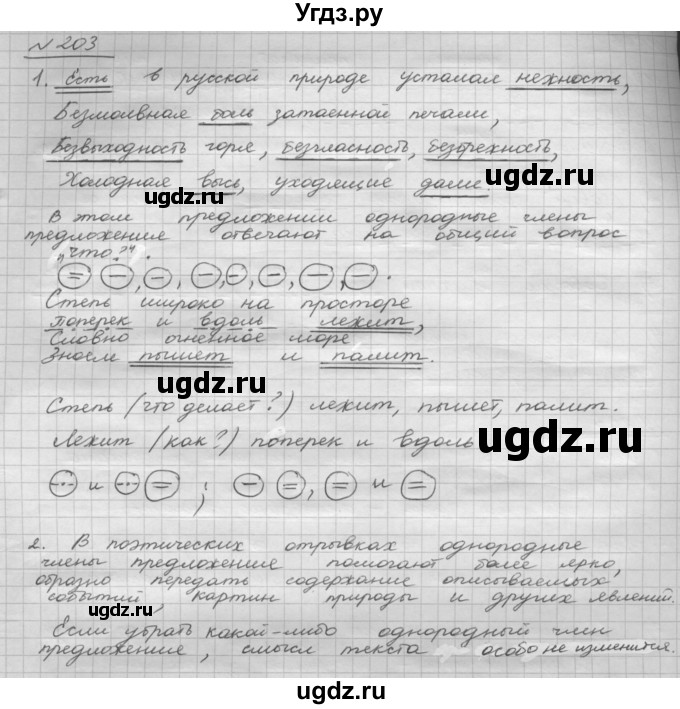 Угдз.ру
№ 203
1. Есть в русской природе усталая нежность,
Безмолвная боль затаенной печали,
Безвыходность горя, безгласность, безбрежность,
Холодная высь, уходящие дали.
В этом предложении однородные члены
предложения отвечают на общий вопрос
„что?".
Степь широко на просторе
Поперек и вдоль лежит,
Словно огненное море
Зноем пышет и палит.
Степь (что делает?) лежит, пышет, палит.
Лежит (как?) поперек и вдоль
и ; , и
2. В поэтических отрывках однородные
члены предложение помогают более ярко,
образно передать содержание описываемых
событий, картин природы и других явлений.
Если убрать какой-либо однородный член
предложения, смысл текста особо не изменится.
ugdz.ru
ugdz.ru
ugdz.ru
ugdz.ru
ugdz.ru
ugdz.ru
ugdz.ru
ugdz.ru